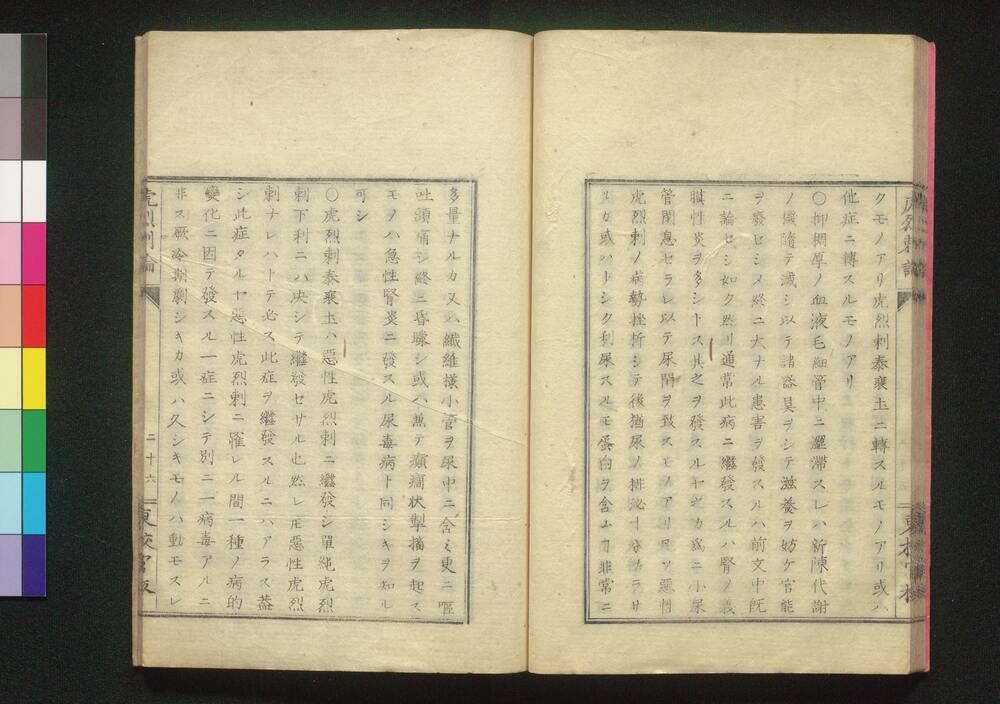 クモノアリ虎烈剌泰衰土ニ轉スルモノアリ或ハ
他症ニ轉スルモノアリ
〇抑稠厚ノ血液毛細管中ニ澀滯スレハ新陳代謝
ノ機隨テ減シ以テ諸器具ヲシテ滋養ヲ妨ケ官能
ヲ廢セシメ終ニ大ナル患害ヲ發スルハ前文中旣
ニ論セシ如ク然リ通常此病ニ繼發スルハ腎ノ義
膜性炎ヲ多シトス其之ヲ發スルヤ之カ爲ニ小尿
管閉息セラレ以テ尿閉ヲ致スモノアリ且ツ惡性
虎烈剌ノ病勢挫折シテ後猶尿ノ排泌十分ナラサ
ルカ或ハ少シク利尿スルモ蛋白ヲ含ム
非常ニ
多量ナルカ又ハ纖維橫小管ヲ尿中ニ含ミ更ニ嘔
吐頭痛シ終ニ昏矇シ或ハ兼テ癲癎状掣搐ヲ起ス
モノハ急性腎炎ニ發スル尿毒病ト同シキヲ知ル
可シ
〇虎烈剌泰衰土ハ惡性虎烈剌ニ繼發シ單純虎烈
剌下利ニハ决シテ繼發セサル也然レ𪜈惡性虎烈
剌ナレハトテ必ス此症ヲ繼發スルニハアラス蓋
シ此症タルヤ惡性虎烈剌ニ罹レル間一種ノ病的
變化ニ因テ發スル一症ニシテ別ニ一病毒アルニ
非ス厥冷期劇シキカ或ハ久シキモノハ動モスレ
虎烈剌論
二十六
東校官版